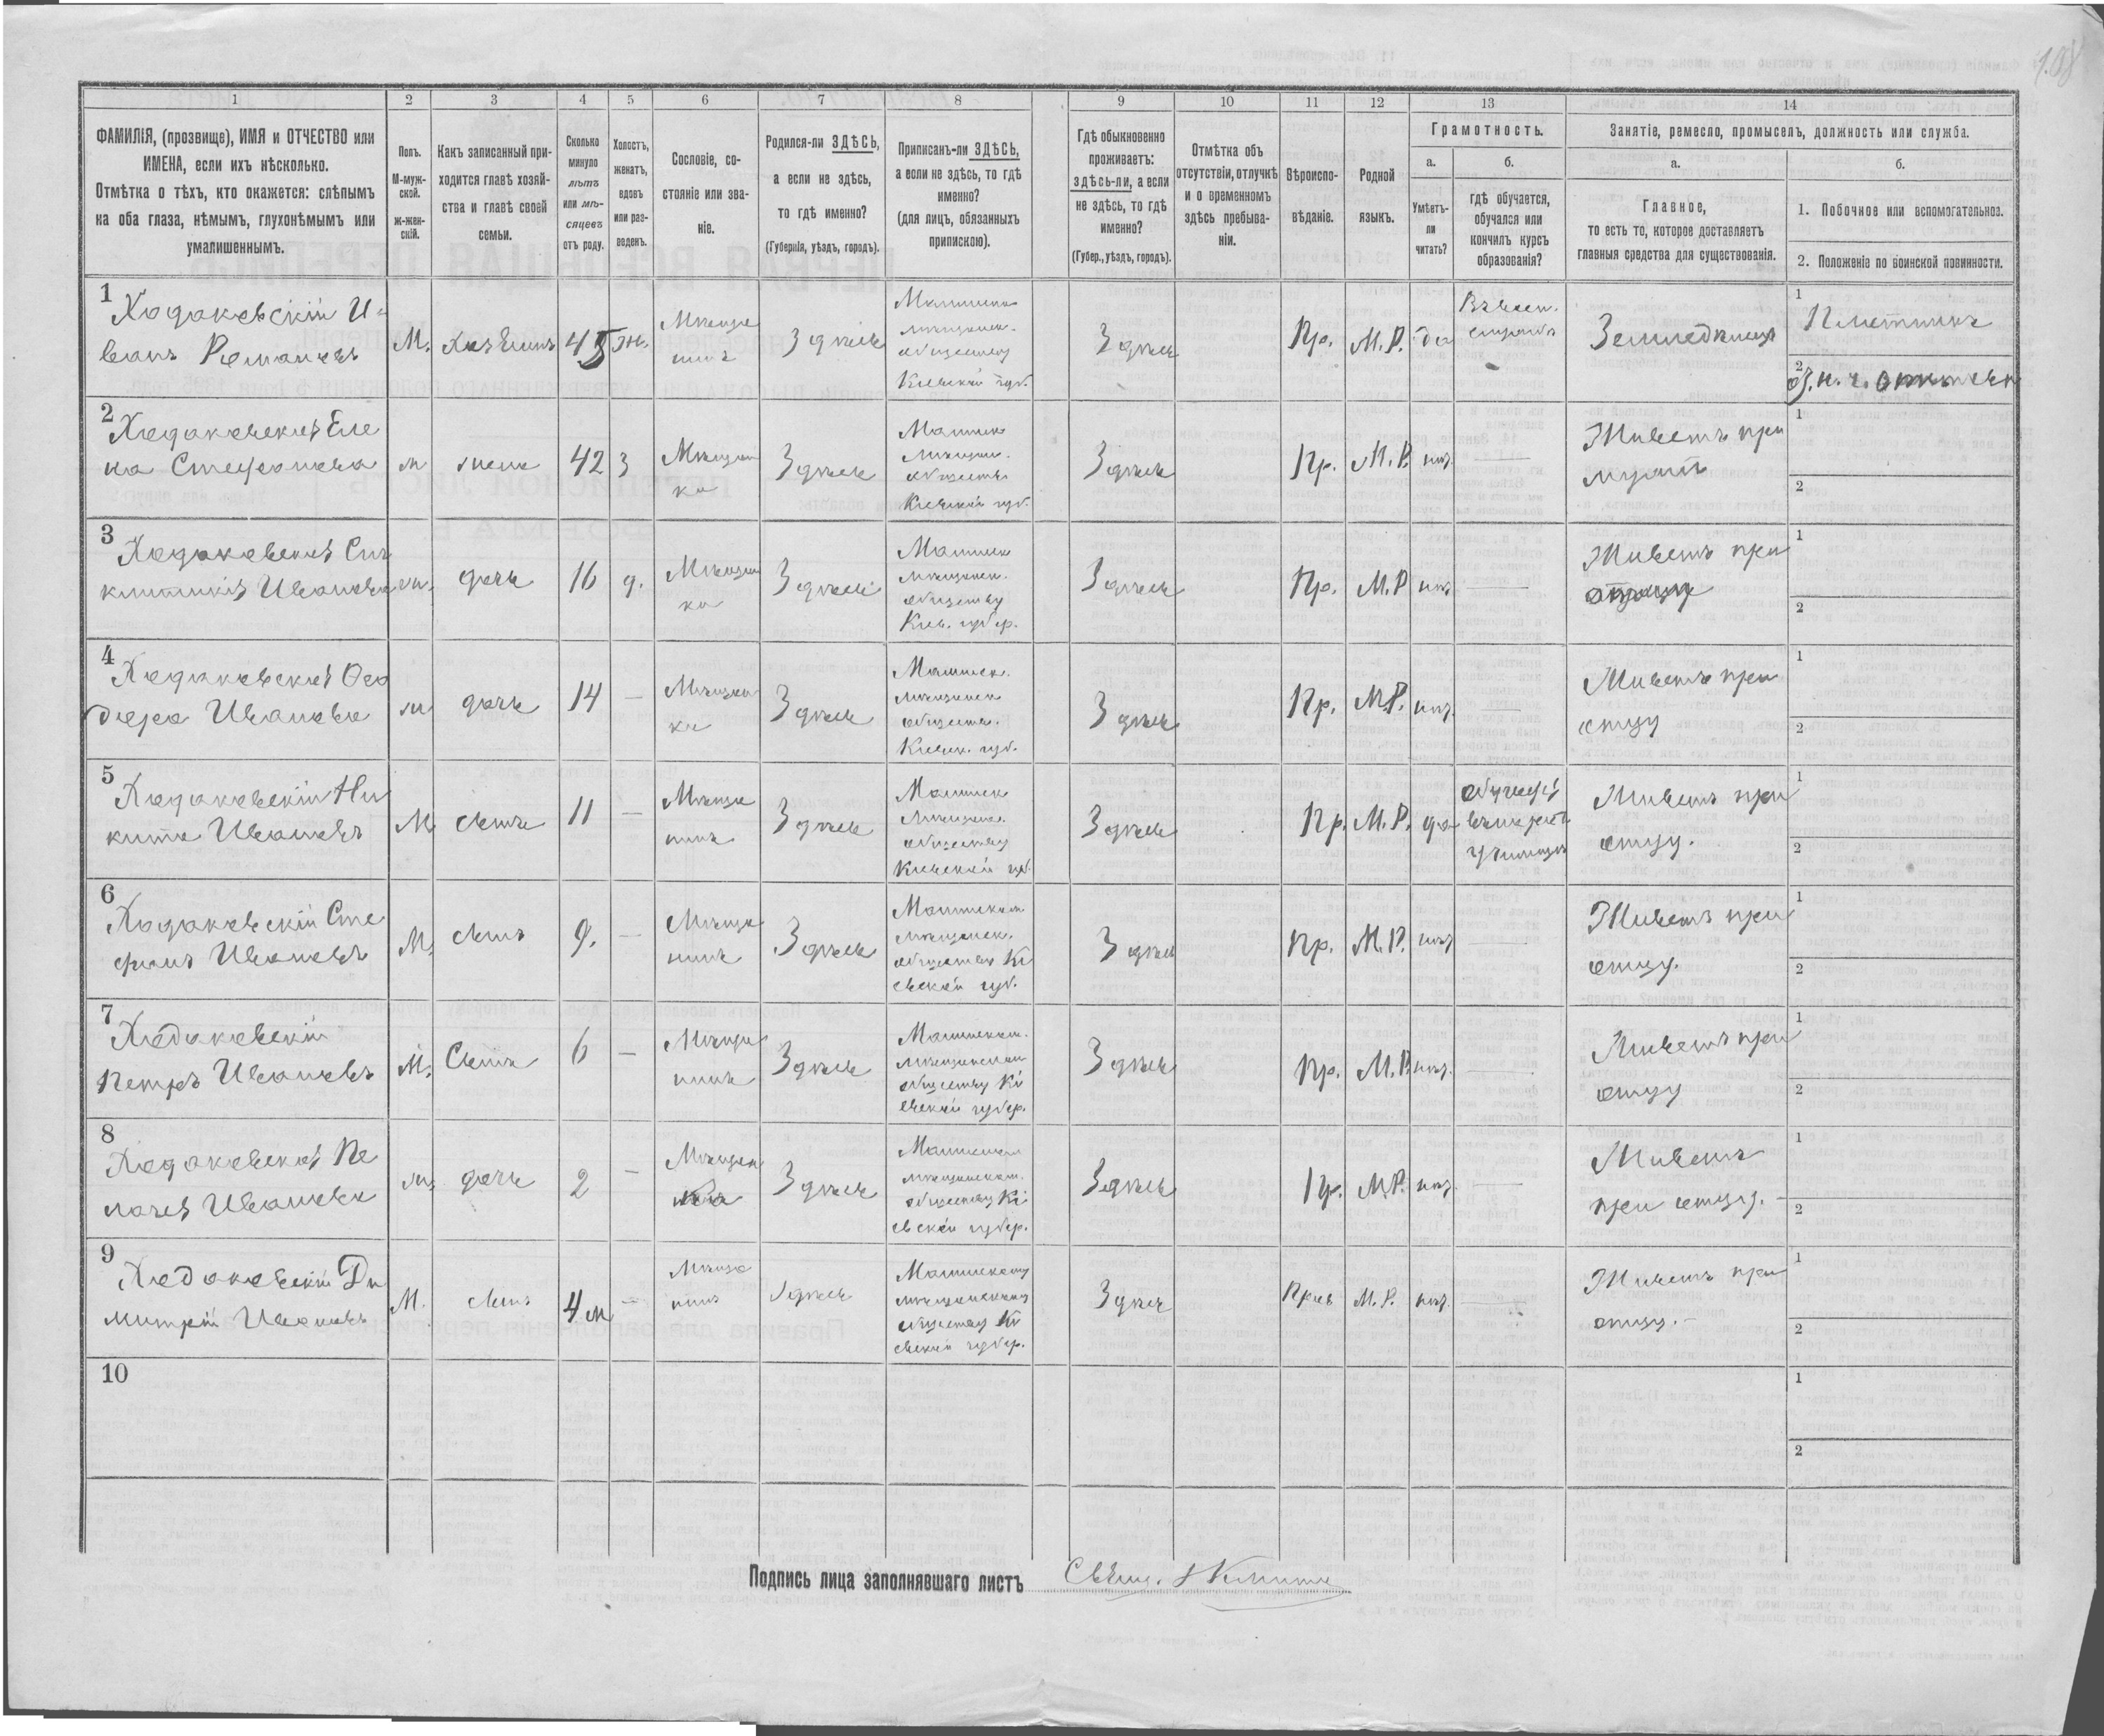 1 2 3 4 5 6 7 8 9 10 11 12 13 14
ФАМИЛІЯ, (прозвище), ИМЯ и ОТЧЕСТВО или
ИМЕНА, если ихъ нѣсколько.
Отмѣтка о тѣхъ, кто окажется: слѣпымъ
на оба глаза, нѣмымъ, глухонѣмымъ или
умалишеннымъ.
Полъ.
М-муж-
ской.
ж-жен-
скій.
Какъ записанный при-
ходится главѣ хозяй-
ства и главѣ своей
семьи.
Сколько
минуло
лѣтъ
или мѣ-
сяцевъ
отъ роду.
Холостъ,
женатъ,
вдовъ
или раз-
веденъ.
Сословіе, со-
стояніе или зва-
ніе.
Родился-ли ЗДѢСЬ,
а если не здѣсь,
то гдѣ именно?
(Губернія, уѣздъ, городъ).
Приписанъ-ли ЗДѢСЬ,
а если не здѣсь, то гдѣ
именно?
(для лицъ, обязанныхъ
припискою).
Гдѣ обыкновенно
проживаетъ:
здѣсь-ли, а если
не здѣсь, то гдѣ
именно?
(Губер., уѣздъ, городъ).
Отмѣтка объ
отсутствіи, отлучкѣ
и о временномъ
здѣсь пребыва-
ніи.
Вѣроиспо-
вѣданіе.
Родной
языкъ.
Грамотность.
а.
Умѣетъ-
ли
читать?
б.
гдѣ обучается,
обучался или
кончилъ курсъ
образованія?
Занятіе, ремесло, промыселъ, должность или служба.
а.
Главное,
то есть то, которое доставляетъ
главныя средства для существованія.
б.
1. Побочное или вспомогательное.
2. Положеніе по воинской повинности.
1
Ходаковскій И-
ванъ Романовъ
М. хозяинъ 45 ж.
Мѣща
нинъ
Здѣсь
мѣщанск.
обществу
Кіевской губ.
Здѣсь
Пр. М.Р. да
Земледѣлецъ
1
Плотникъ
2
2
Ходаковская Еле
на Стефанова
ж жена 42 з
Мѣщан
ка
Здѣсь
мѣщан.
обществ.
Кіевской губ.
Здѣсь
Пр. М.Р. нѣт
Живетъ при
мужѣ
1
2
3
Ходаковская Син
клитикія Иванова
ж. дочь 16 д.
Мѣщан
ка
Здѣсь
мѣщанск.
обществу
Кіев. губер.
Здѣсь
Пр. М.Р. нѣт
Живетъ при
отцу
1
2
4
Ходаковская Ѳео
дора Иванова
ж дочь 14 —
Мѣщан
ка
Здѣсь
мѣщанск
обществ.
Кіевск. губ.
Здѣсь
Пр. М.Р. нѣт.
Живетъ при
отцу
1
2
5
Ходаковскій Ни
кита Ивановъ
М. сынъ 11 —
Мѣща
нинъ
Здѣсь
мѣщанск.
обществу
Кіевской губ.
Здѣсь
Пр. М.Р. да
Живетъ при
отцу.
1
2
6
Ходаковскій Сте
фанъ Ивановъ
М. сынъ 9. —
Мѣща
нинъ
Здѣсь
мѣщанск.
обществу Кі
евской губ.
Здѣсь
Пр. М.Р. нѣт
Живетъ при
отцу.
1
2
7
Ходаковскій
Петръ Ивановъ
М. Сынъ 6 —
Мѣща
нинъ
Здѣсь
обществу Кі
евской губер.
Здѣсь
Пр. М.Р. нѣт.
Живетъ при
отцу
1
2
8
Ходаковская Пе
лагея Иванова
ж. дочь 2 —
Мѣщан
ка
Здѣсь
мѣщанском.
обществу Кі
евской губер.
Здѣсь
Пр. М.Р. нѣт.
Живетъ
при отцу.
1
2
9
Ходаковскій Ди
митрій Ивановъ
М. сынъ 4 м —
Мѣща
нинъ
Здѣсь
мѣщанскому
обществу Кі
евской губер.
Здѣсь
Прав М.Р. нѣт.
Живетъ при
отцу.
1
2
10
1
2
Подпись лица заполнявшаго листъ